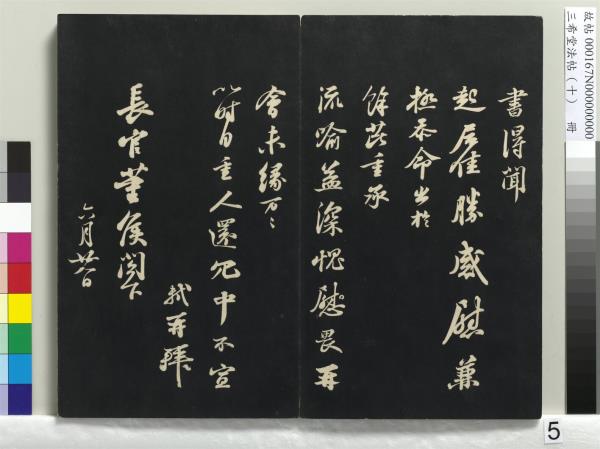 書得聞
起居佳勝感慰兼
極忝命出於
餘芘重承
流喻益深愧慰畏再
會未緣万〻
以時自重人還冗中不宣
軾再拜
長官董侯閣下
六月廿八日
故帖 000167N000000000
三希堂法帖(十) 冊
5